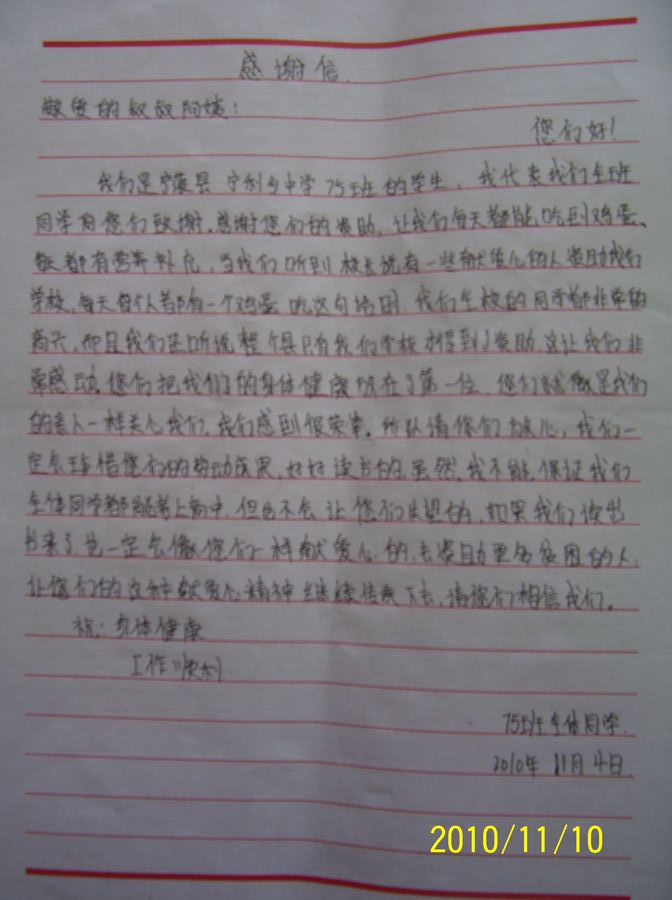 感谢信
敬爱的叔叔阿姨：
您们好！
我们是宁蒗县 宁利乡中学75班的学生，我代表我们全班
同学向您们致谢，感谢您们的资助，让我们每天都能吃到鸡蛋、
每天都有营养补充，当我们听到校长说有一些献爱心的人资助我们
学校，每天每人都有一个鸡蛋吃这句话时，我们全校的同学都非常的
高兴，而且我们还听说整个县只有我们学校才得到了资助，这让我们非
常感动，您们把我们的身体健康放在了第一位，您们就像是我们
的亲人一样关心我们，我们感到很荣幸。所以请你们放心，我们一
定会珍惜您们的劳动成果，好好读书的，虽然，我不能保证我们
全体同学都能考上高中，但也不会让您们失望的，如果我们读出
书来了，也一定会像您们一样献爱心的，去资助更多贫困的人，
让您们的这种献爱心精神继续传承下去，请您们相信我们。
祝：身体健康
工作顺利
75班全体同学
2010年11月4日
2010/11/10